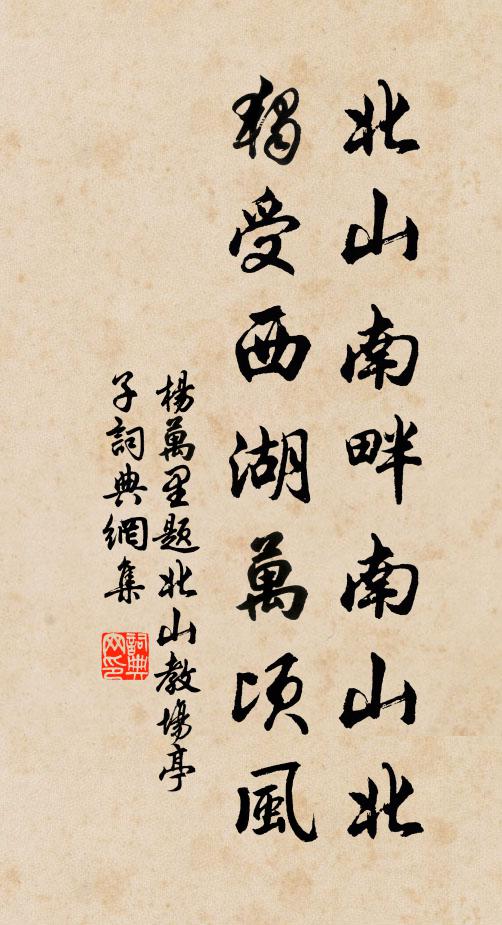 北山南畔南山北
獨受西湖萬頃風
楊萬里題北山教場亭
子詞典網集
詞典網印